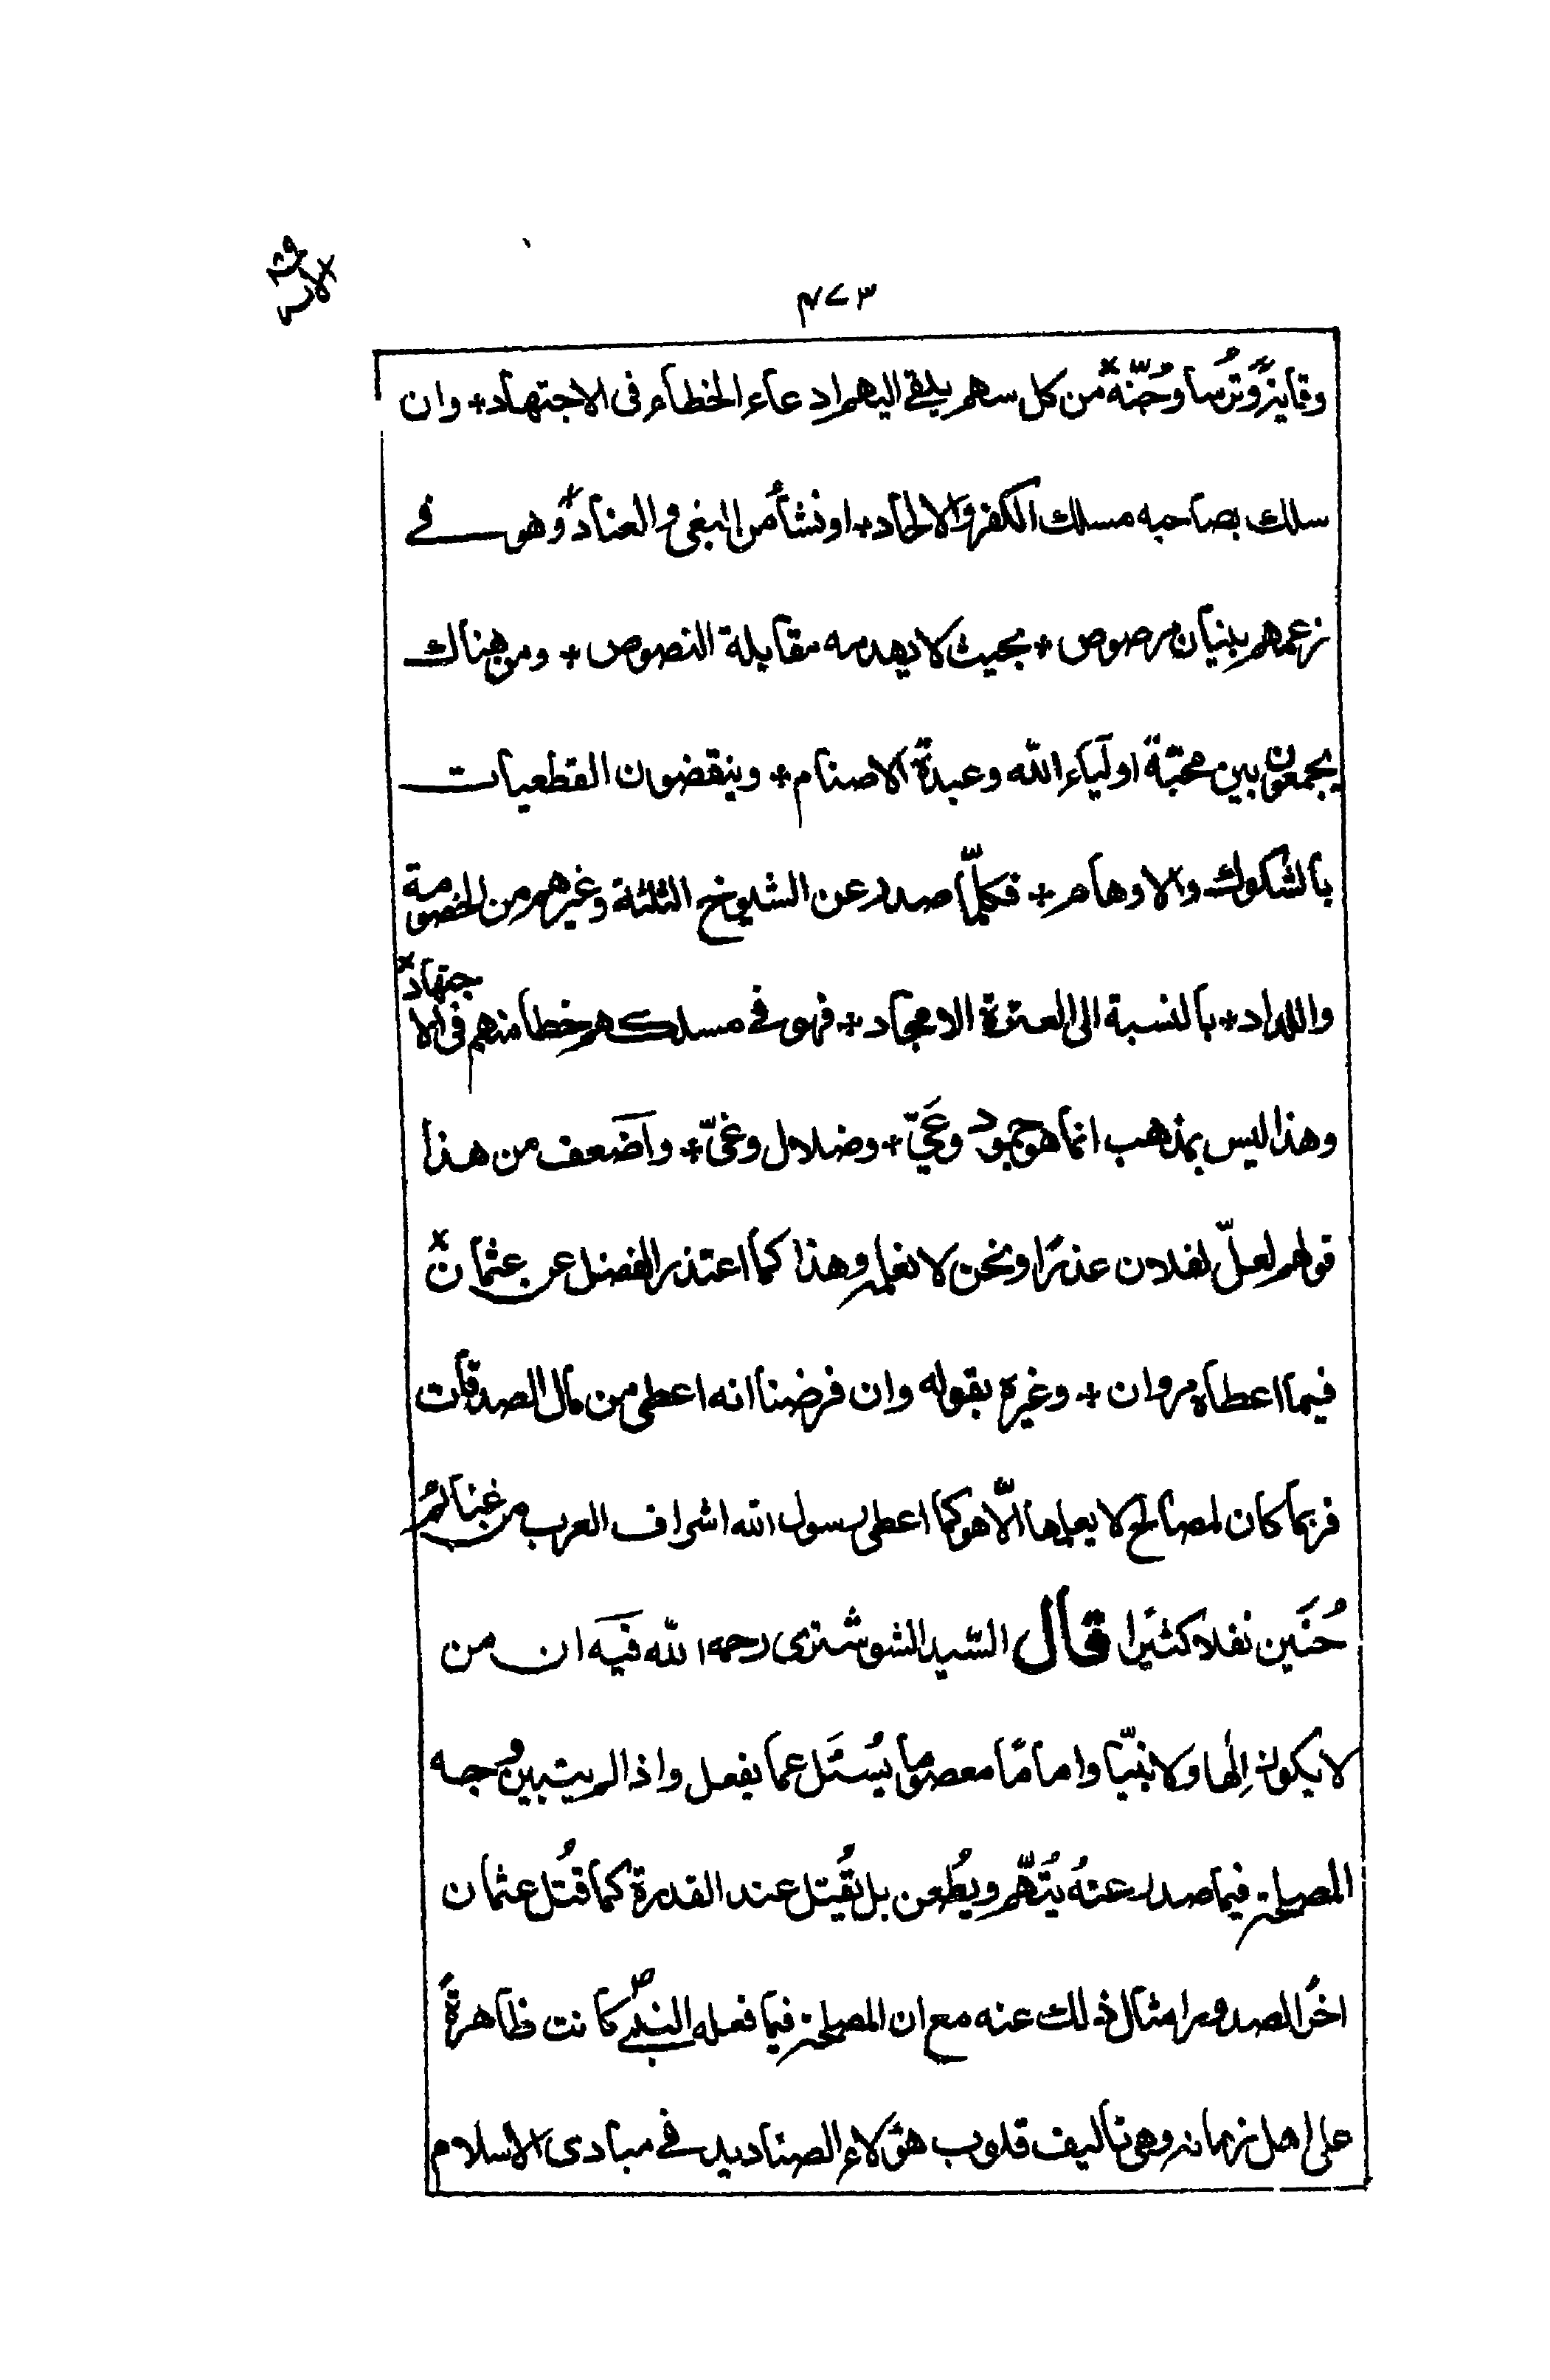 ٤٧٣
وقايةً وتُرسا وجُنّة من كل سهم يلقى اليهم ادعاء الخطاء فى الاجتهاد + وان
سلك بصاحبه مسلك الكفر والالحاد + او نشأ من البغى والعناد وهو فى
زعمهم بنيان مرصوص + بحيث لا يهدمه مقابلة النصوص + ومن هناك
يجمعون بين محبّة اولياء الله وعبدة الاصنام + وينقضون القطعيات
بالشكوك والاوهام + فكلّما صدر عن الشيوخ الثلثة وغيرهم من الخصومة
واللداد + بالنسبة الى العترة الامجاد + فهو فى مسلكهم خطا منهم فى الاجتهاد
وهذا ليس بمذهب انما هو جمود وعَيّ + وضلال وغىّ + واضعف من هذا
قولهم لعلّ لفلان عذرًا ونحن لا نعلمه وهذا كما اعتذر الفضل عن عثمان
فيما اعطاه مروان + وغيره بقوله وان فرضنا انه اعطى من مال الصدقات
فربما كان لمصالح لا يعلمها الّا هو كما اعطى رسول الله اشراف العرب من غنائم
حُنَين نفلا كثيرا قال السّيد الشوشترى رحمه الله فيه ان من
لا يكون إلها ولا نبيّا واماما معصوما يُسئَل عما يفعل واذا لم يتبين وجه
المصلحة فيما صدر عنهُ يُتّهم ويُطعن بل يُقتل عند القدرة كما قُتل عثمان
اخر الصدور امثال ذلك عنه مع ان المصلحة فيما فعله النبى ص كانت ظاهرةً
على اهل زمانه وهى تاليف قلوب هؤلاء الصناديد فى مبادى الاسلام